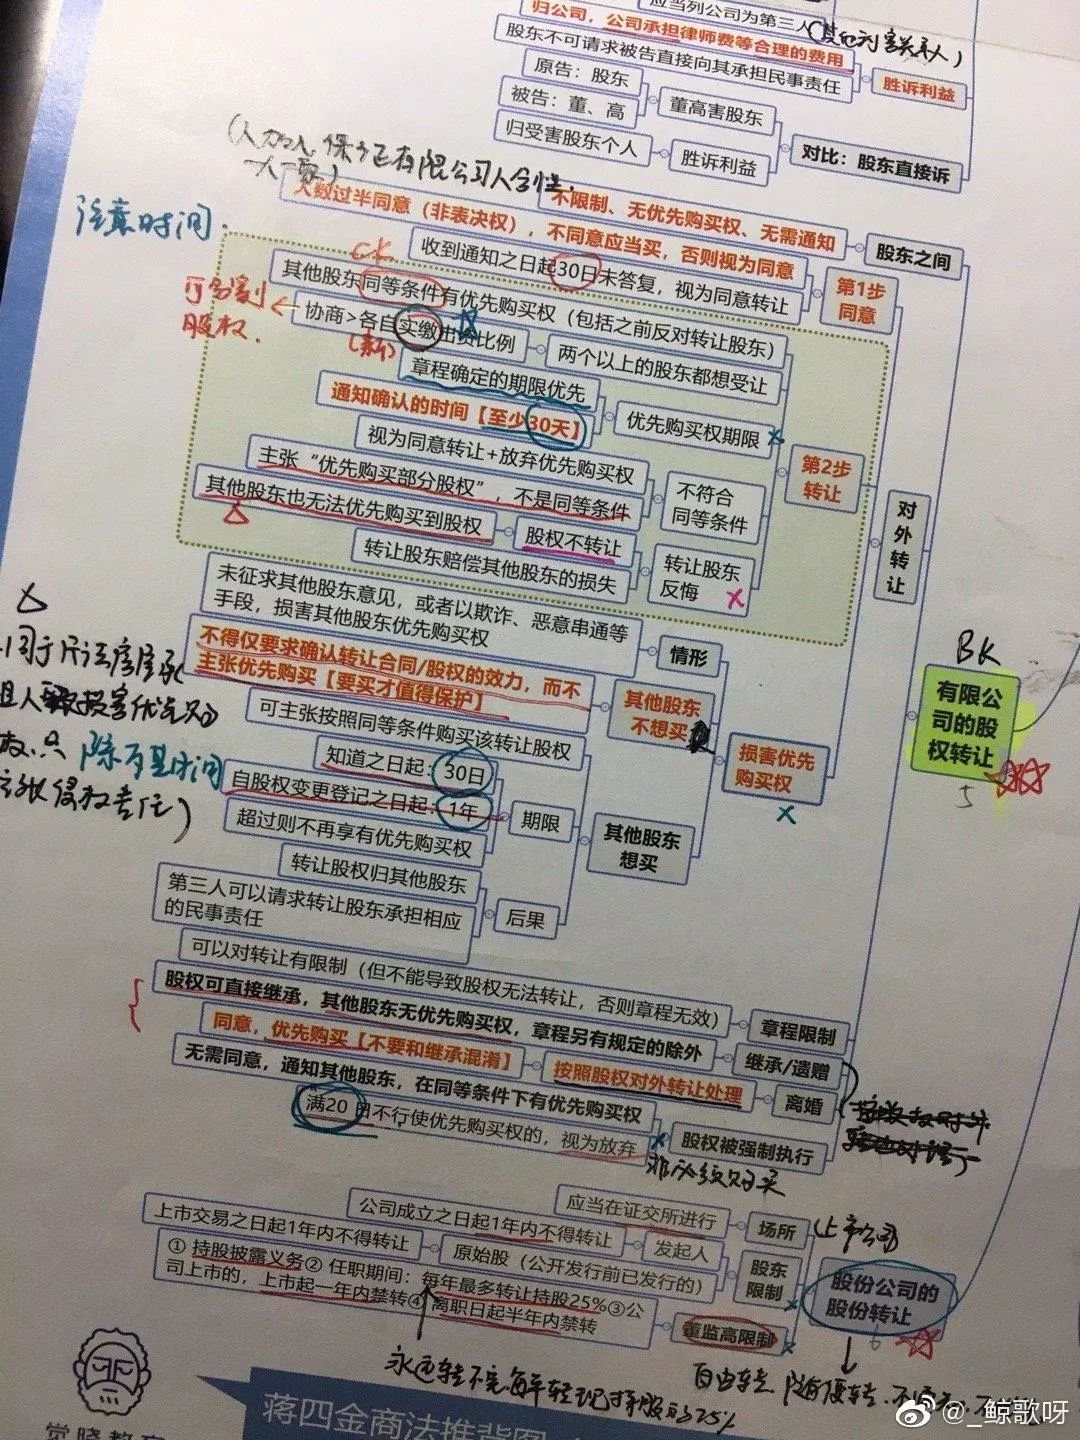 应当列公司为第三人
(其他利害关系人)
归公司，公司承担律师费等合理的费用
股东不可请求被告直接向其承担民事责任
胜诉利益
原告：股东
被告：董、高
董高害股东
归受害股东个人
胜诉利益
对比：股东直接诉
保护正有限公司人合性
注意时间
不限制、无优先购买权、无需通知
股东之间
人数过半同意（非表决权），不同意应当买，否则视为同意
收到通知之日起30日未答复，视为同意转让
第1步
同意
其他股东同等条件有优先购买权（包括之前反对转让股东）
可分割
股权
协商>各自实缴出资比例
两个以上的股东都想受让
章程确定的期限优先
通知确认的时间【至少30天】
优先购买权期限
视为同意转让+放弃优先购买权
主张“优先购买部分股权”，不是同等条件
不符合
同等条件
第2步
转让
其他股东也无法优先购买到股权
股权不转让
转让股东赔偿其他股东的损失
转让股东
反悔
对外转让
未征求其他股东意见，或者以欺诈、恶意串通等
手段，损害其他股东优先购买权
情形
不得仅要求确认转让合同/股权的效力，而不
主张优先购买【要买才值得保护】
其他股东
不想买
可主张按照同等条件购买该转让股权
知道之日起：30日
自股权变更登记之日起：1年
超过则不再享有优先购买权
期限
转让股权归其他股东
第三人可以请求转让股东承担相应
的民事责任
后果
其他股东
想买
损害优先
购买权
BK
有限公
司的股
权转让
5
除斥期间
可以对转让有限制（但不能导致股权无法转让，否则章程无效）
章程限制
股权可直接继承，其他股东无优先购买权，章程另有规定的除外
继承/遗赠
同意，优先购买【不要和继承混淆】
按照股权对外转让处理
离婚
无需同意，通知其他股东，在同等条件下有优先购买权
满20日不行使优先购买权的，视为放弃
股权被强制执行
非必须购买
应当在证交所进行
场所
(上市公司)
公司成立之日起1年内不得转让
发起人
上市交易之日起1年内不得转让
原始股（公开发行前已发行的）
股东
限制
①持股披露义务②任职期间：每年最多转让持股25%③公
司上市的，上市起一年内禁转④离职日起半年内禁转
董监高限制
股份公司的
股份转让
6
永远转不完,每年转现持股的25%
自由转 随便转
觉晓教育
蒋四金商法推背图
@_鲸歌呀